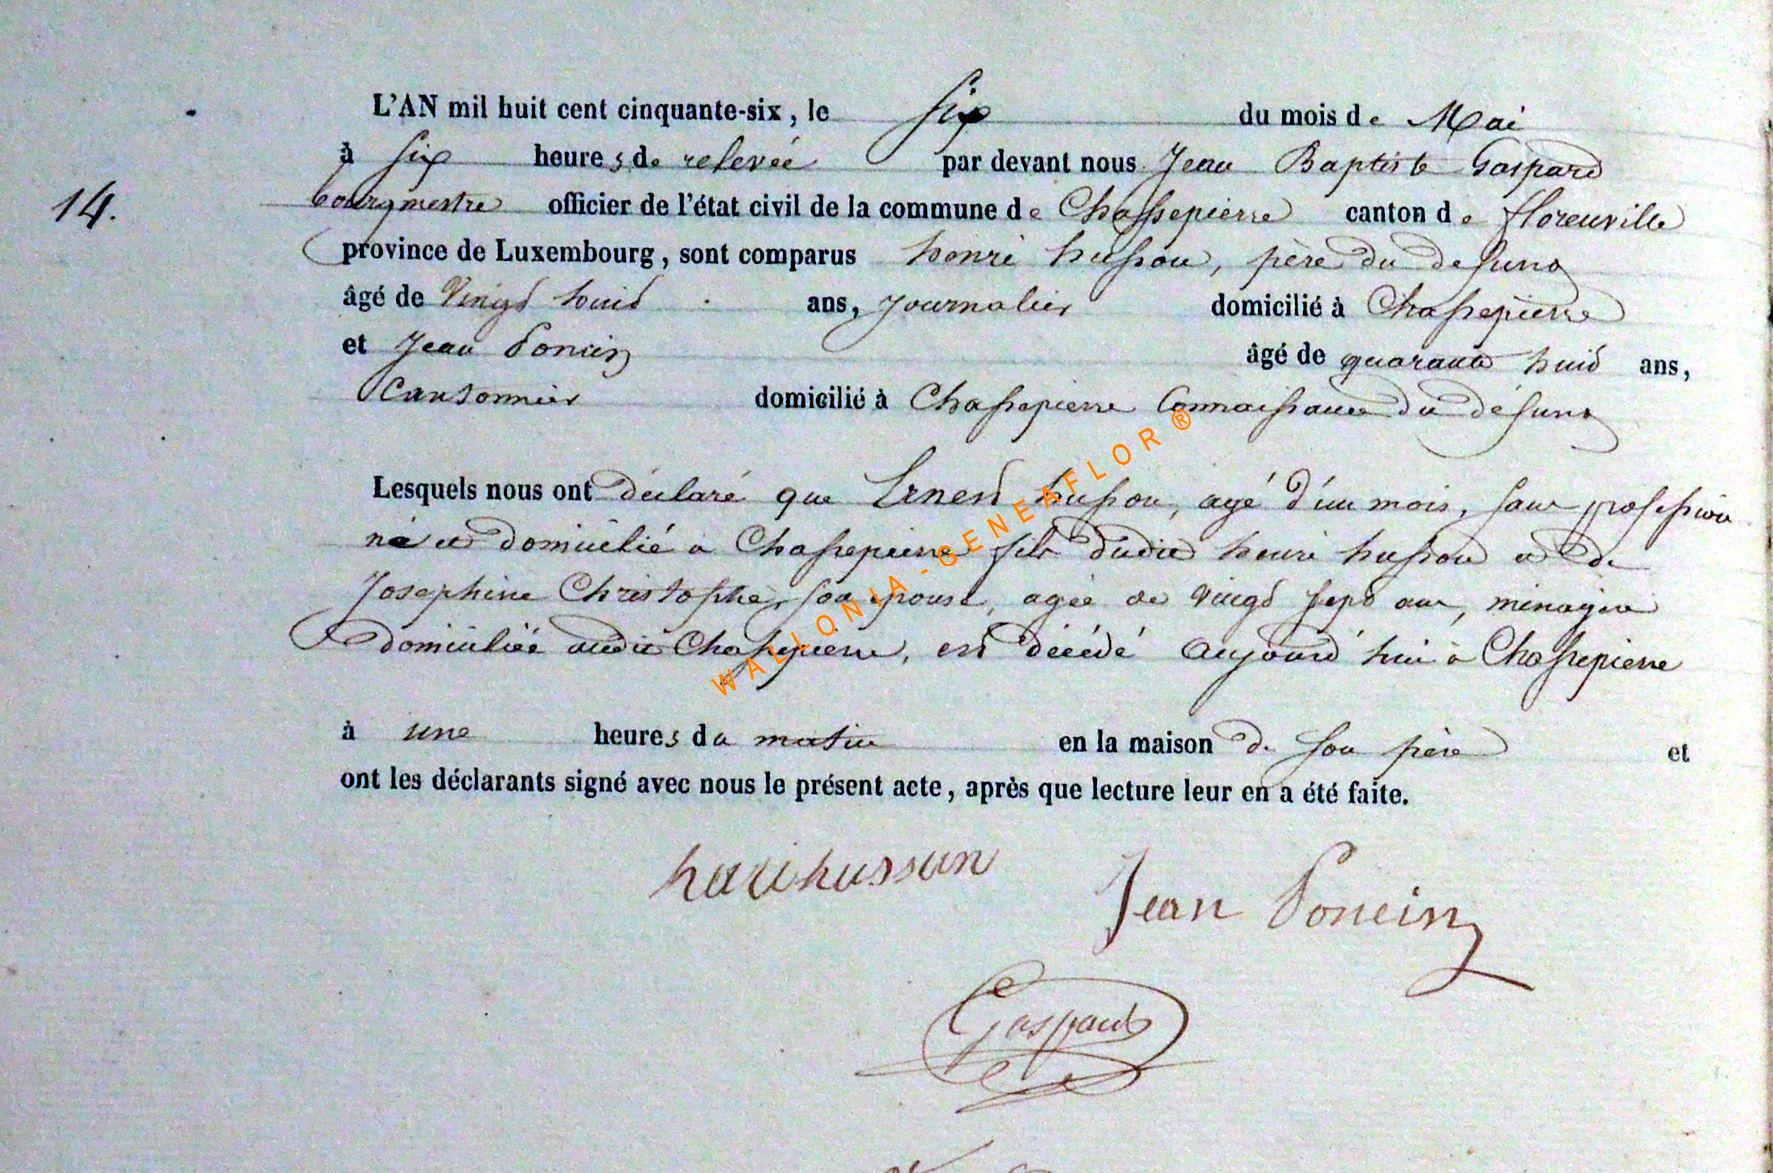 L'AN mil huit cent cinquante-six, le six du mois de Mai
à six heures de relevée par devant nous Jean Baptiste Gaspard
14. bourgmestre officier de l'état civil de la commune de Chassepierre canton de florenville
province de Luxembourg, sont comparus henri husson, père du defunt
âgé de vingt huit ans, journalier domicilié à Chassepierre
et Jean Poncin âgé de quarante huit ans,
Cantonnier domicilié à Chassepierre Connaissance du défunt
Lesquels nous ont déclaré que Ernest husson, agé d'un mois, sans profession
né et domicilié a Chassepierre fils dudit henri husson et de
Josephine Christophe, son épouse, agée de vingt sept ans, ménagère
domiciliée audit Chassepierre, est décédé aujourd'hui à Chassepierre
à une heures du matin en la maison de son père et
ont les déclarants signé avec nous le présent acte, après que lecture leur en a été faite.
hari hussun Jean Poncin
Gaspard
WALLONIA-GENEAFLOR ®